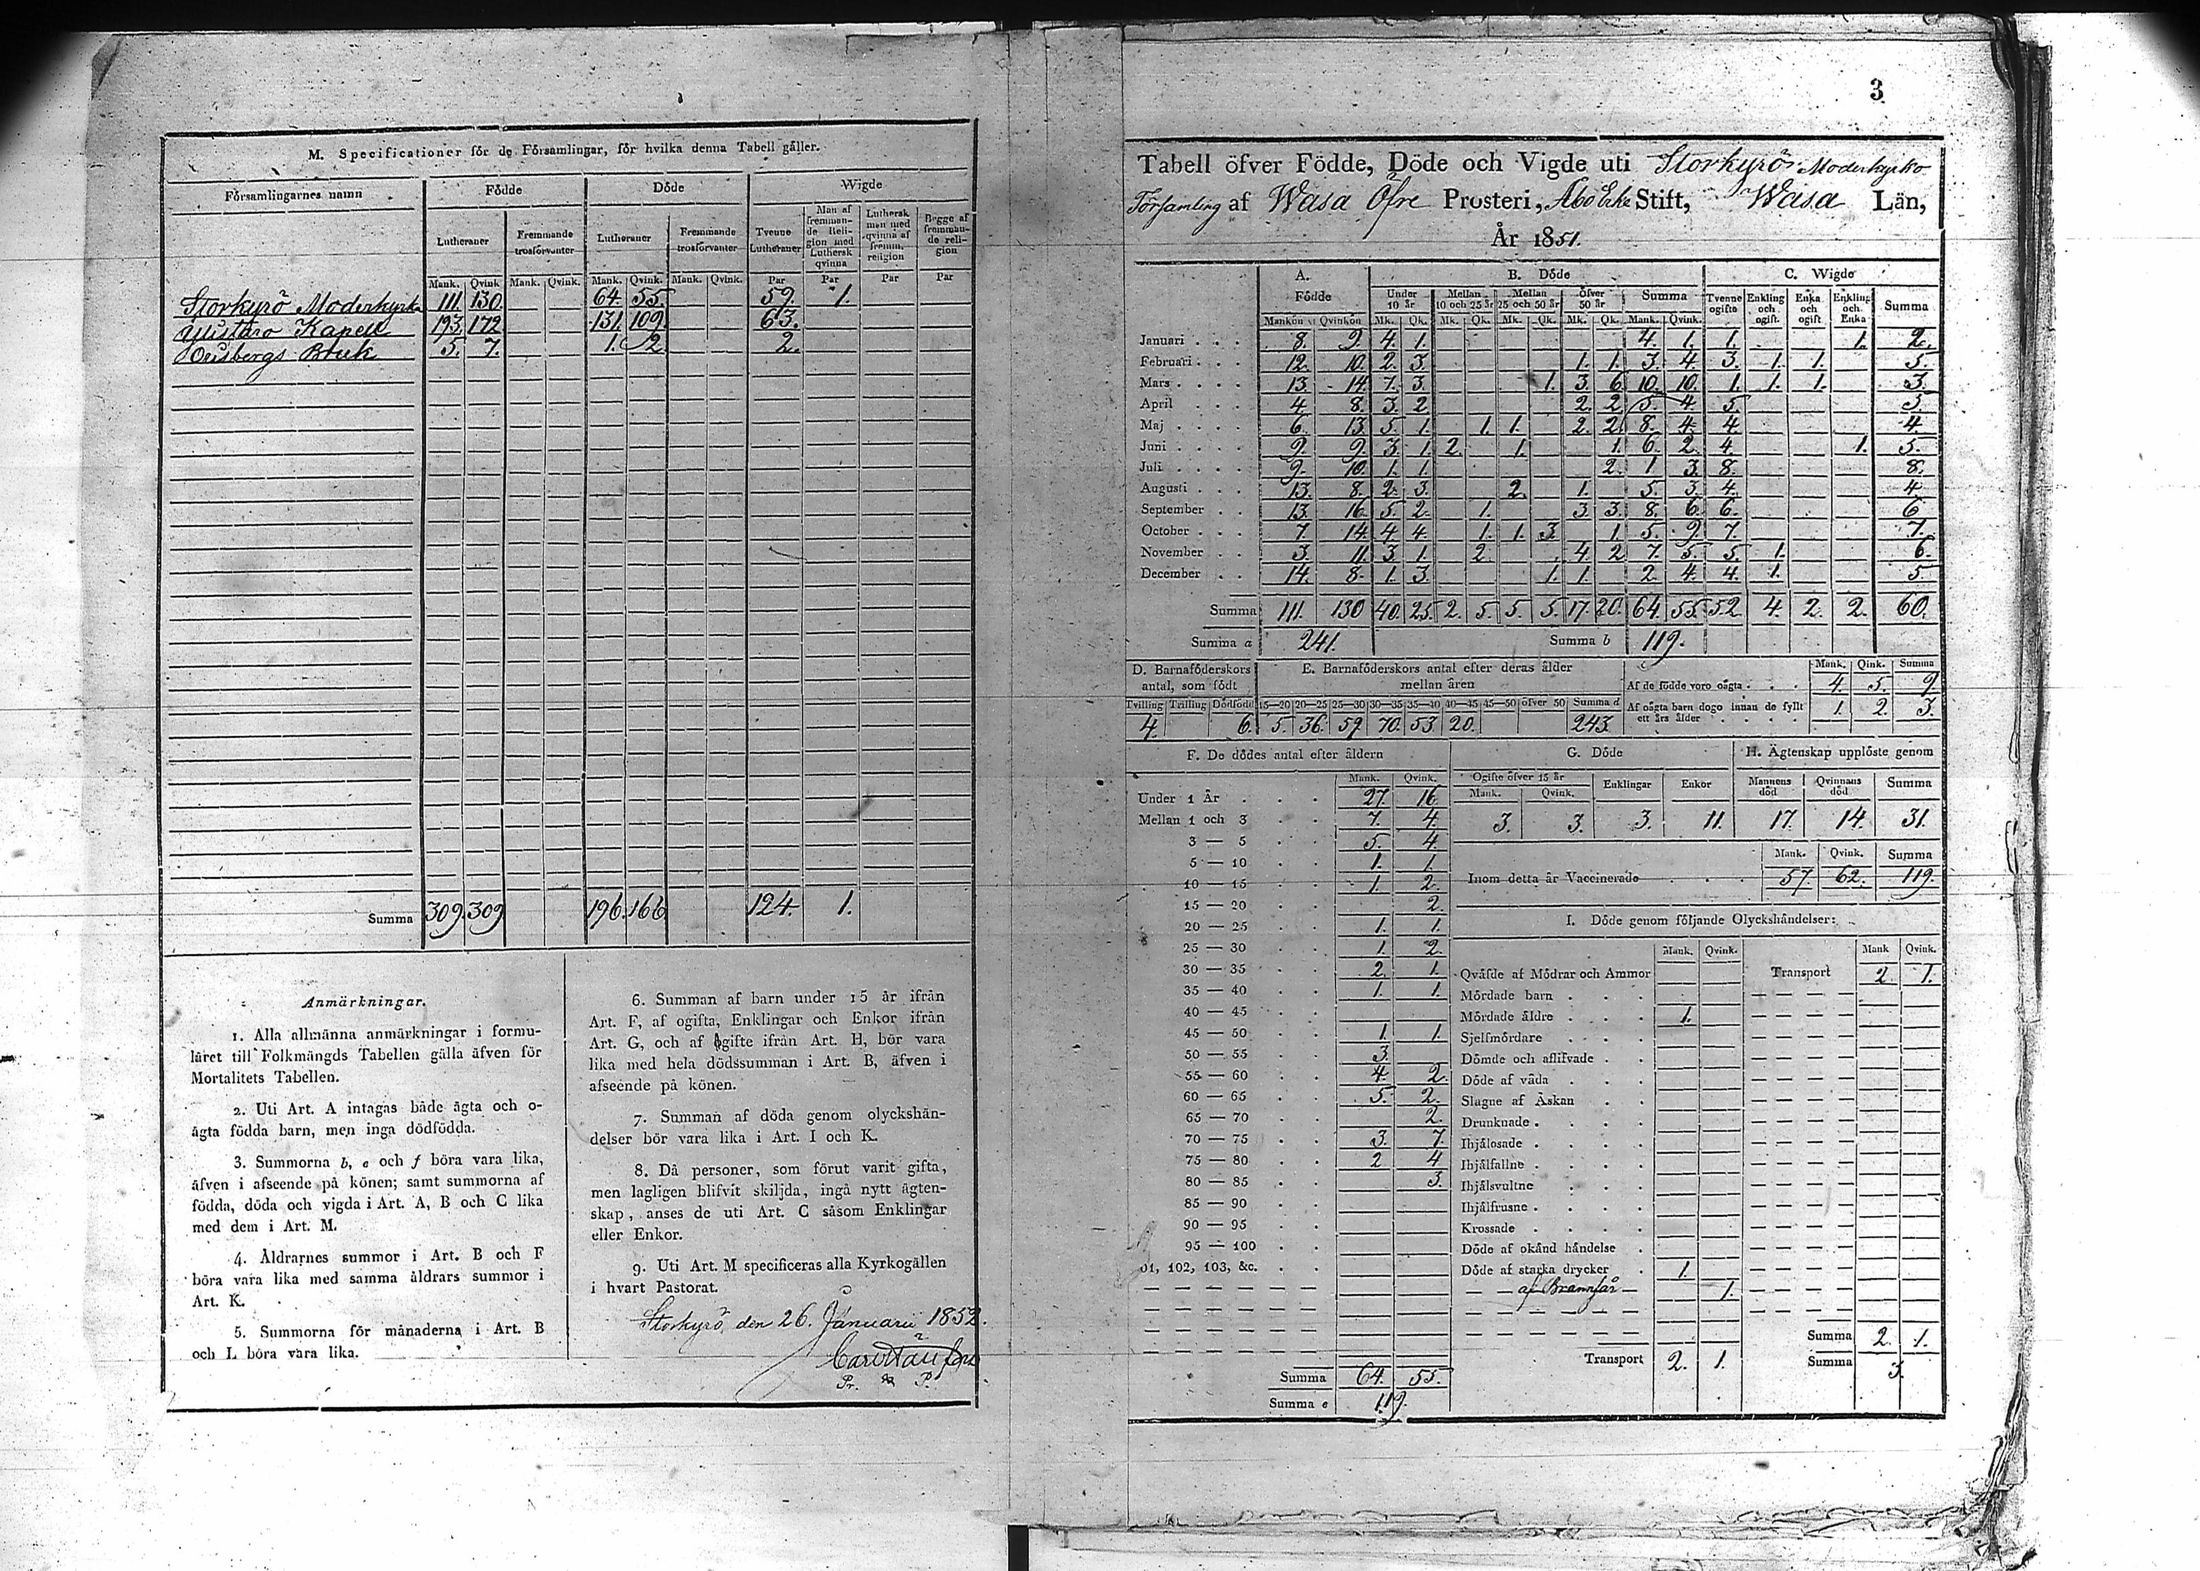 M. Specificationer för de Församlingar, för hvilka denna Tabell gäller.
Församlingarnes namn Födde Döde Wigde
Lutheraner Fremmande trosförvanter Lutheraner Fremmande trosförvanter Tvenne Lutheraner Man af fremmande Religion med Luthersk qvinna Luthersk men med qvinna af fremm. religion Begge af fremmande religion
Mank. Qvink. Mank. Qvink. Mank. Qvink. Mank. Qvink. Par Par Par Par
Storkyrö Moderkyrka 111. 130. 64. 55. 59. 1.
Kapell 193. 172 131. 109. 63.
Bruk 5. 7. 1. 2. 2.
Summa 309. 309 196. 166 124. 1.
Anmärkningar.
1. Alla allmänna anmärkningar i formu-
läret till Folkmängds Tabellen gälla äfven för
Mortalitets Tabellen.
2. Uti Art. A intagas både ägta och o-
ägta födda barn, men inga dödfödda.
3. Summorna b, e och f böra vara lika,
äfven i afseende på könen; samt summorna af
födda, döda och vigda i Art. A, B och C lika
med dem i Art. M.
4. Åldrarnes summor i Art. B och F
böra vara lika med samma åldrars summor i
Art. K.
5. Summorna för månaderna i Art. B
och L böra vara lika.
6. Summan af barn under 15 år ifrån
Art. F, af ogifta, Enklingar och Enkor ifrån
Art. G, och af gifte ifrån Art. H, bör vara
lika med hela dödssumman i Art. B, äfven i
afseende på könen.
7. Summan af döda genom olyckshän-
delser bör vara lika i Art. I och K.
8. Då personer, som förut varit gifta,
men lagligen blifvit skiljda, ingå nytt ägten-
skap, anses de uti Art. C såsom Enklingar
eller Enkor.
9. Uti Art. M specificeras alla Kyrkogällen
i hvart Pastorat.
Storkyrö, den 26. Januarii 1852.
3
Tabell öfver Födde, Döde och Vigde uti Storkyrö Moderkyrko
Församling af Wasa Öfre Prosteri, Åbo Erke Stift, Wasa Län,
År 1851.
A. B. Döde C. Wigde
Födde Under 10 år Mellan 10 och 25 år Mellan 25 och 50 år Öfver 50 år Summa Tvenne ogifte Enkling och ogift. Enka och ogift Enkling och Enka Summa
Mankön Qvinkön Mk. Qk. Mk. Qk. Mk. Qk. Mk. Qk. Mank. Qvink.
Januari 8. 9. 4. 1. 4. 1. 1. 1. 2.
Februari 12. 10. 2. 3. 1. 1. 3. 4. 3. 1. 1. 5.
Mars 13. 14. 7. 3. 1. 3. 6. 10. 10. 1. 1. 1. 3.
April 4. 8. 3. 2. 2. 2. 5. 4. 5. 5.
Maj 6. 13. 5. 1. 1. 1. 2. 2. 8. 4. 4. 4.
Juni 9. 9. 3. 1. 2. 1. 1. 6. 2. 4. 1. 5.
Juli 9. 10. 1. 1. 2. 1 3. 8. 8.
Augusti 13. 8. 2. 3. 2. 1. 5. 3. 4. 4.
September 13. 16. 5. 2. 1. 3 3. 8. 6. 6. 6
October 7. 14. 4 4. 1. 1. 3 1. 5. 9. 7. 7.
November 3. 11. 3. 1. 2. 4 2 7. 5. 5. 1. 6.
December 14. 8. 1. 3. 1. 1. 2. 4. 4. 1. 5
Summa 111. 130 40. 25. 2. 5. 5. 5. 17. 20. 64. 55. 52 4. 2. 2. 60.
Summa a 241. Summa b 119.
D. Barnaföderskors antal, som födt E. Barnaföderskors antal efter deras ålder mellan åren Mank. Qink. Summa
Af de födde voro oägta 4. 5. 9.
Tvilling Trilling Dödfödt 15—20 20—25 25—30 30—35 35—40 40—45 45—50 öfver 50 Summa d Af oägta barn dogo innan de fyllt ett års ålder 1. 2. 3.
4. 6. 5. 36. 59. 70. 53 20. 243.
F. De dödes antal efter åldern G. Döde H. Ägtenskap upplöste genom
Mank. Qvink. Ogifte öfver 15 år Mank. Qvink. Enklingar Enkor Mannens död Qvinnans död Summa
3. 3. 3. 11. 17. 14. 31.
Under 1 År 27. 16
Mellan 1 och 3 7. 4.
3 — 5 5. 4.
5 — 10 1. 1.
10 — 15 1. 2.
15 — 20 2.
20 — 25 1. 1.
25 — 30 1. 2.
30 — 35 2. 1.
35 — 40 1. 1.
40 — 45
45 — 50 1. 1.
50 — 55 3.
55 — 60 4. 2.
60 — 65 5. 2.
65 — 70 2.
70 — 75 3. 7.
75 — 80 2 4
80 — 85 3.
85 — 90
90 — 95
95 — 100
01, 102, 103, &c.
Summa 64. 55.
Summa e 119.
Mank. Qvink. Summa
Inom detta år Vaccinerade 57. 62. 119.
I. Döde genom följande Olyckshändelser:
Mank. Qvink. Mank Qvink.
Qväfde af Mödrar och Ammor Transport 2. 1.
Mördade barn
Mördade äldre 1.
Sjelfmördare
Dömde och aflifvade
Döde af våda
Slagne af Åskan
Drunknade
Ihjälosade
Ihjälfallne
Ihjälsvultne
Ihjälfrusne
Krossade
Döde af okänd händelse
Döde af starka drycker 1.
af Brannsår 1.
Summa 2. 1.
Transport 2. 1. Summa 3.